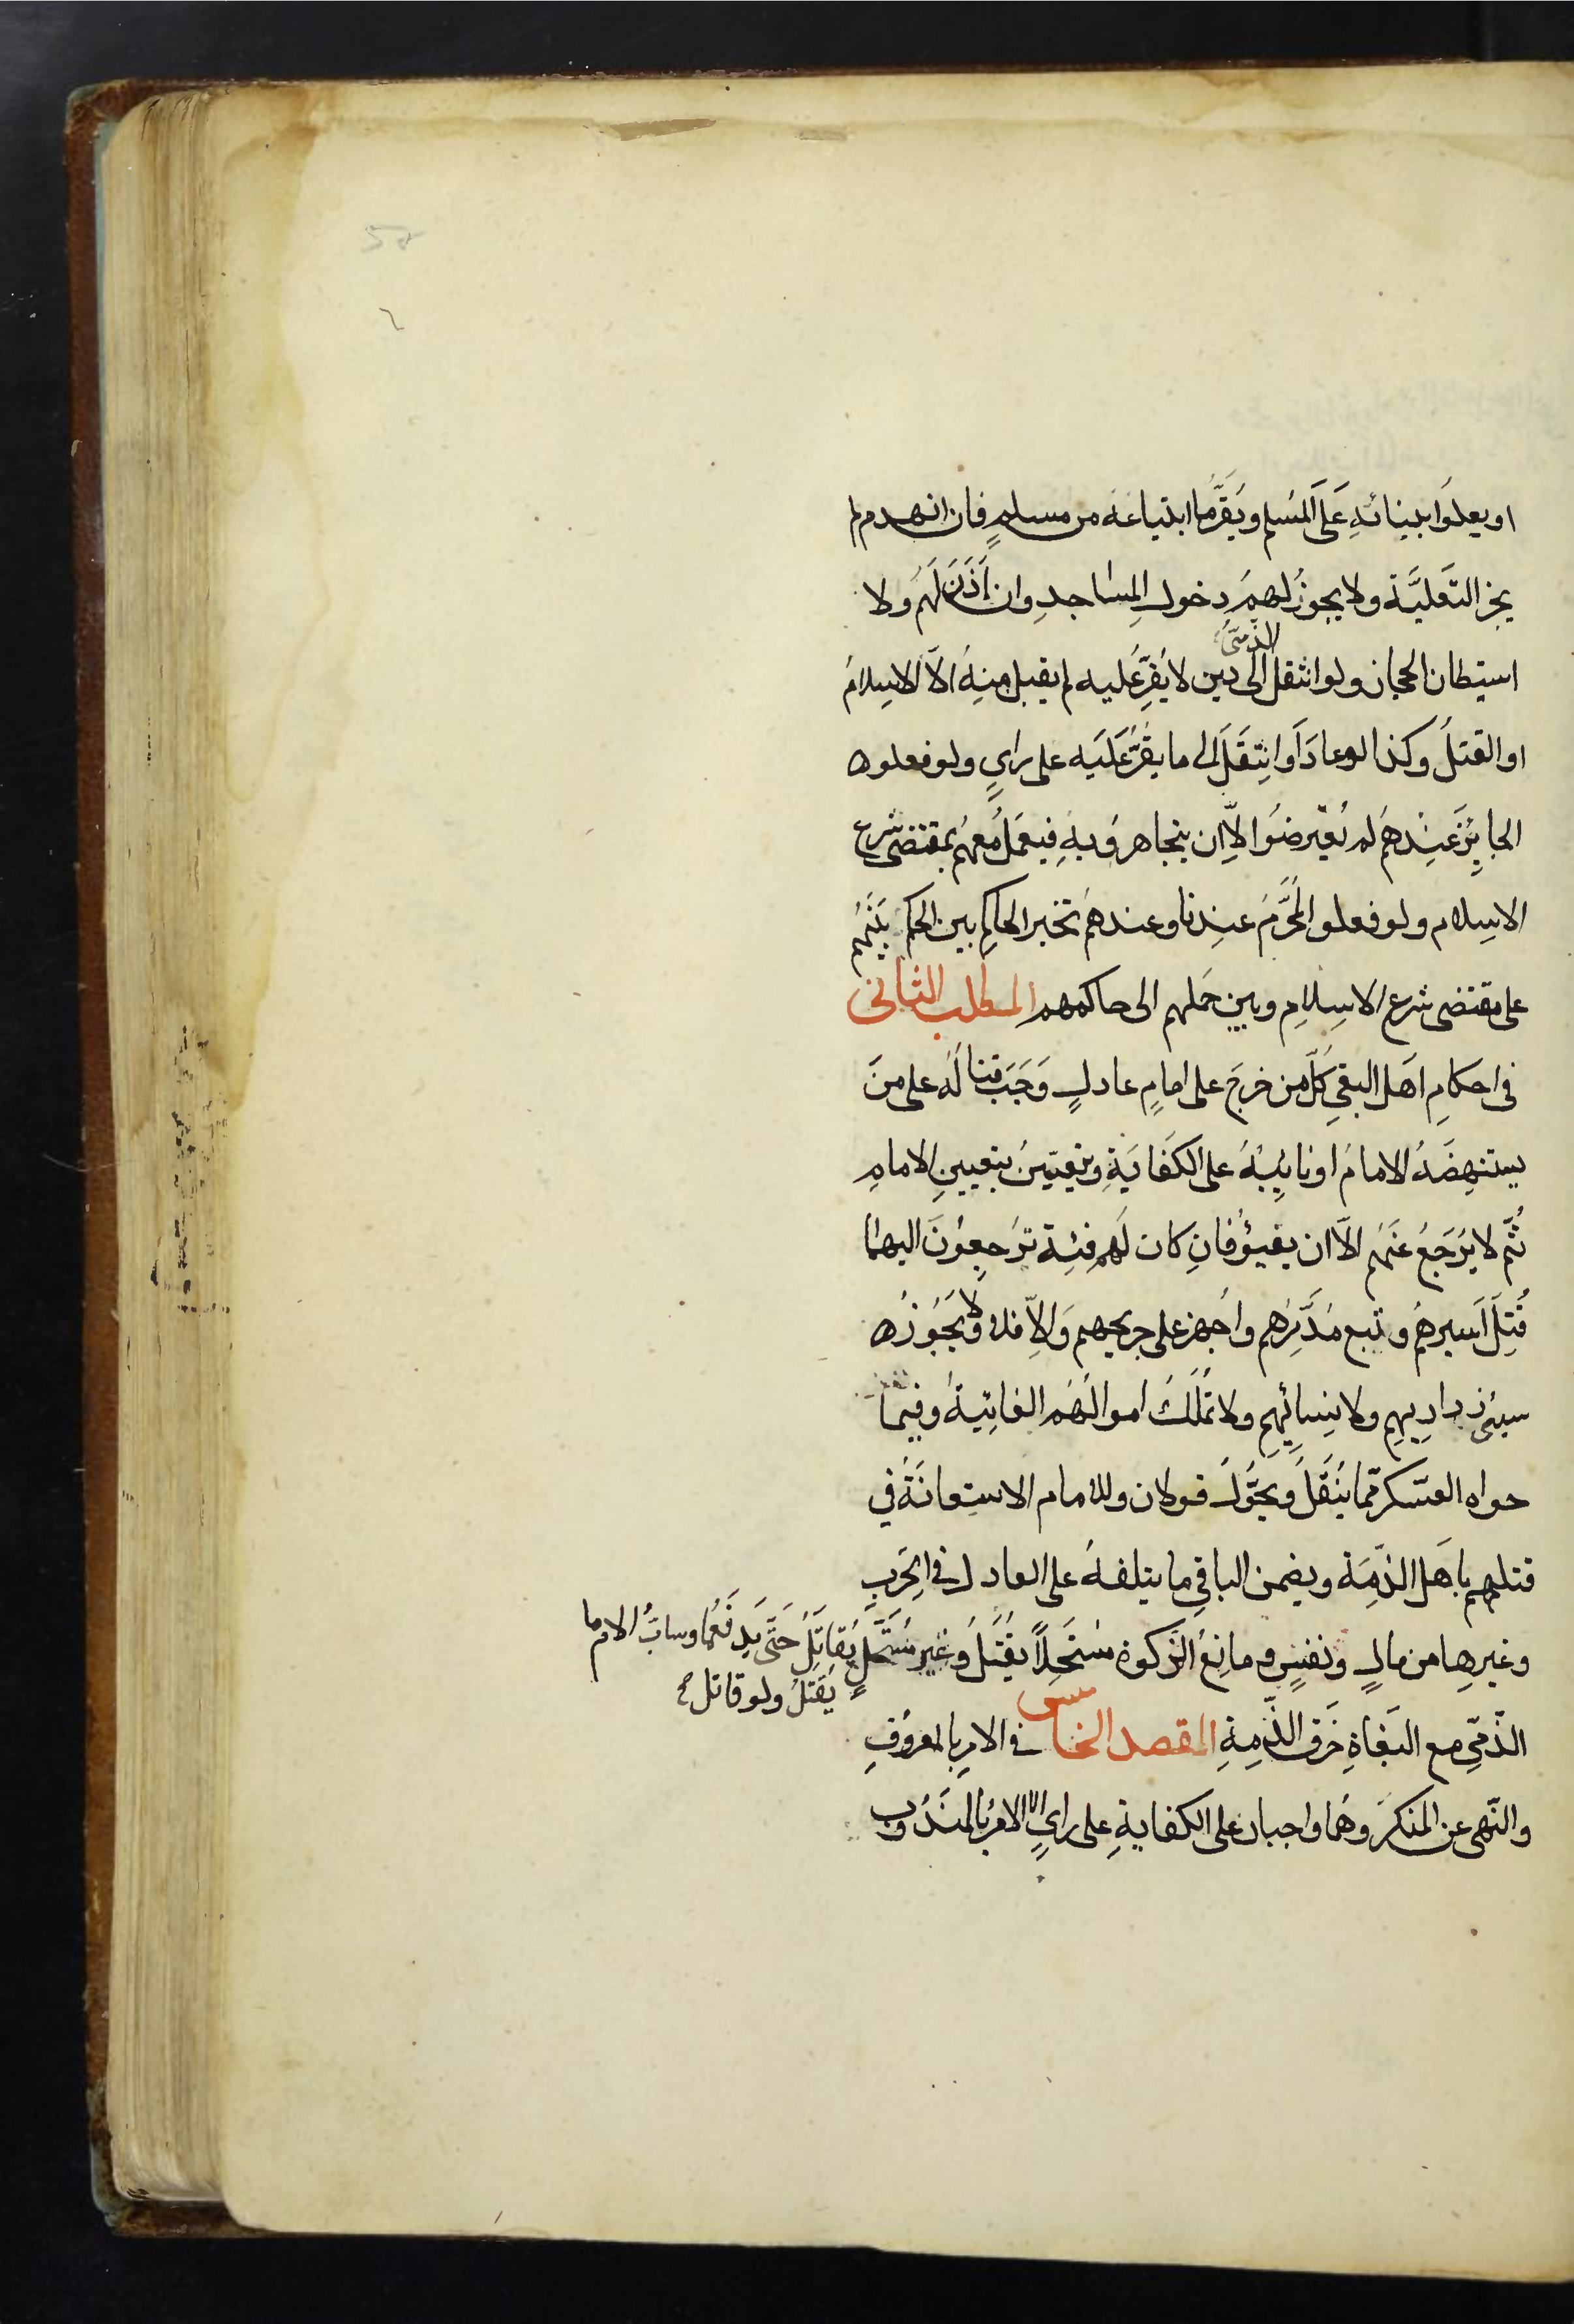 او يعلوا ببنائه على المسلم ويقر ما ابتاعه من مسلم فان انهدم لم
يجز التعلية ولا يجوز لهم دخول المساجد وان أذن لهم ولا
استيطان الحجاز ولو انتقل الذمى الى دين لا يقر عليه لم يقبل منه الا الاسلام
او القتل وكذا لو عاد او انتقل الى ما يقر عليه على راي ولو فعلوا
الجايز عندهم لم يعترضوا الا ان يتجاهروا به فيعمل معهم بمقتضى شرع
الاسلام ولو فعلوا المحرم عندنا وعندهم تخير الحاكم بين الحكم بينهم
على مقتضى شرع الاسلام وبين حملهم الى حاكمهم المطلب الثانى
فى احكام اهل البغي كل من خرج على امام عادل وجب قتاله على من
يستنهضه الامام او نايبه على الكفاية ويتعين بتعيين الامام
ثم لا يرجع عنهم الا ان يفيؤ فان كان لهم فئة ترجعون اليها
قتل اسيرهم وتبع مدبرهم واجهز على جريحهم والا فلا ولا يجوز
سبئ ذراريهم ولا نسائهم ولا تملك اموالهم الغائبة وفيما
حواه العسكر مما ينقل ويحول قولان وللامام الاستعانة في
قتلهم باهل الذمة ويضمن الباقي ما يتلفه على العادل في الحرب
وغيرها من مال ونفس ومانع الزكوة مستحلا يقتل وغير مستحل يقاتل حتى يدفعها وساب الامام
يقتل ولو قاتل
الذمي مع البغاة خرق الذمة المقصد الخامس في الامر بالمعروف
والنهى عن المنكر وهما واجبان على الكفاية على راي الا الامر بالمندوب